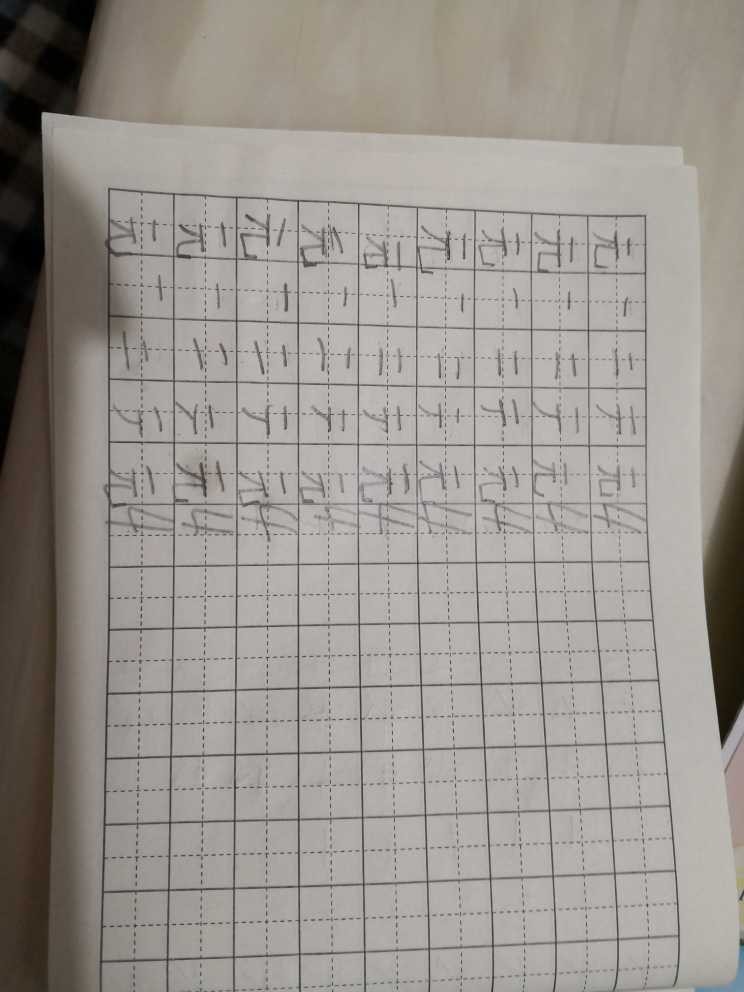 元 一 二 元 4
元 一 二 元 4
元 一 二 元 4
元 一 二 元 4
元 一 二 元 4
元 一 二 元 4
元 一 二 元 4
元 一 二 元 4
元 一 二 元 4